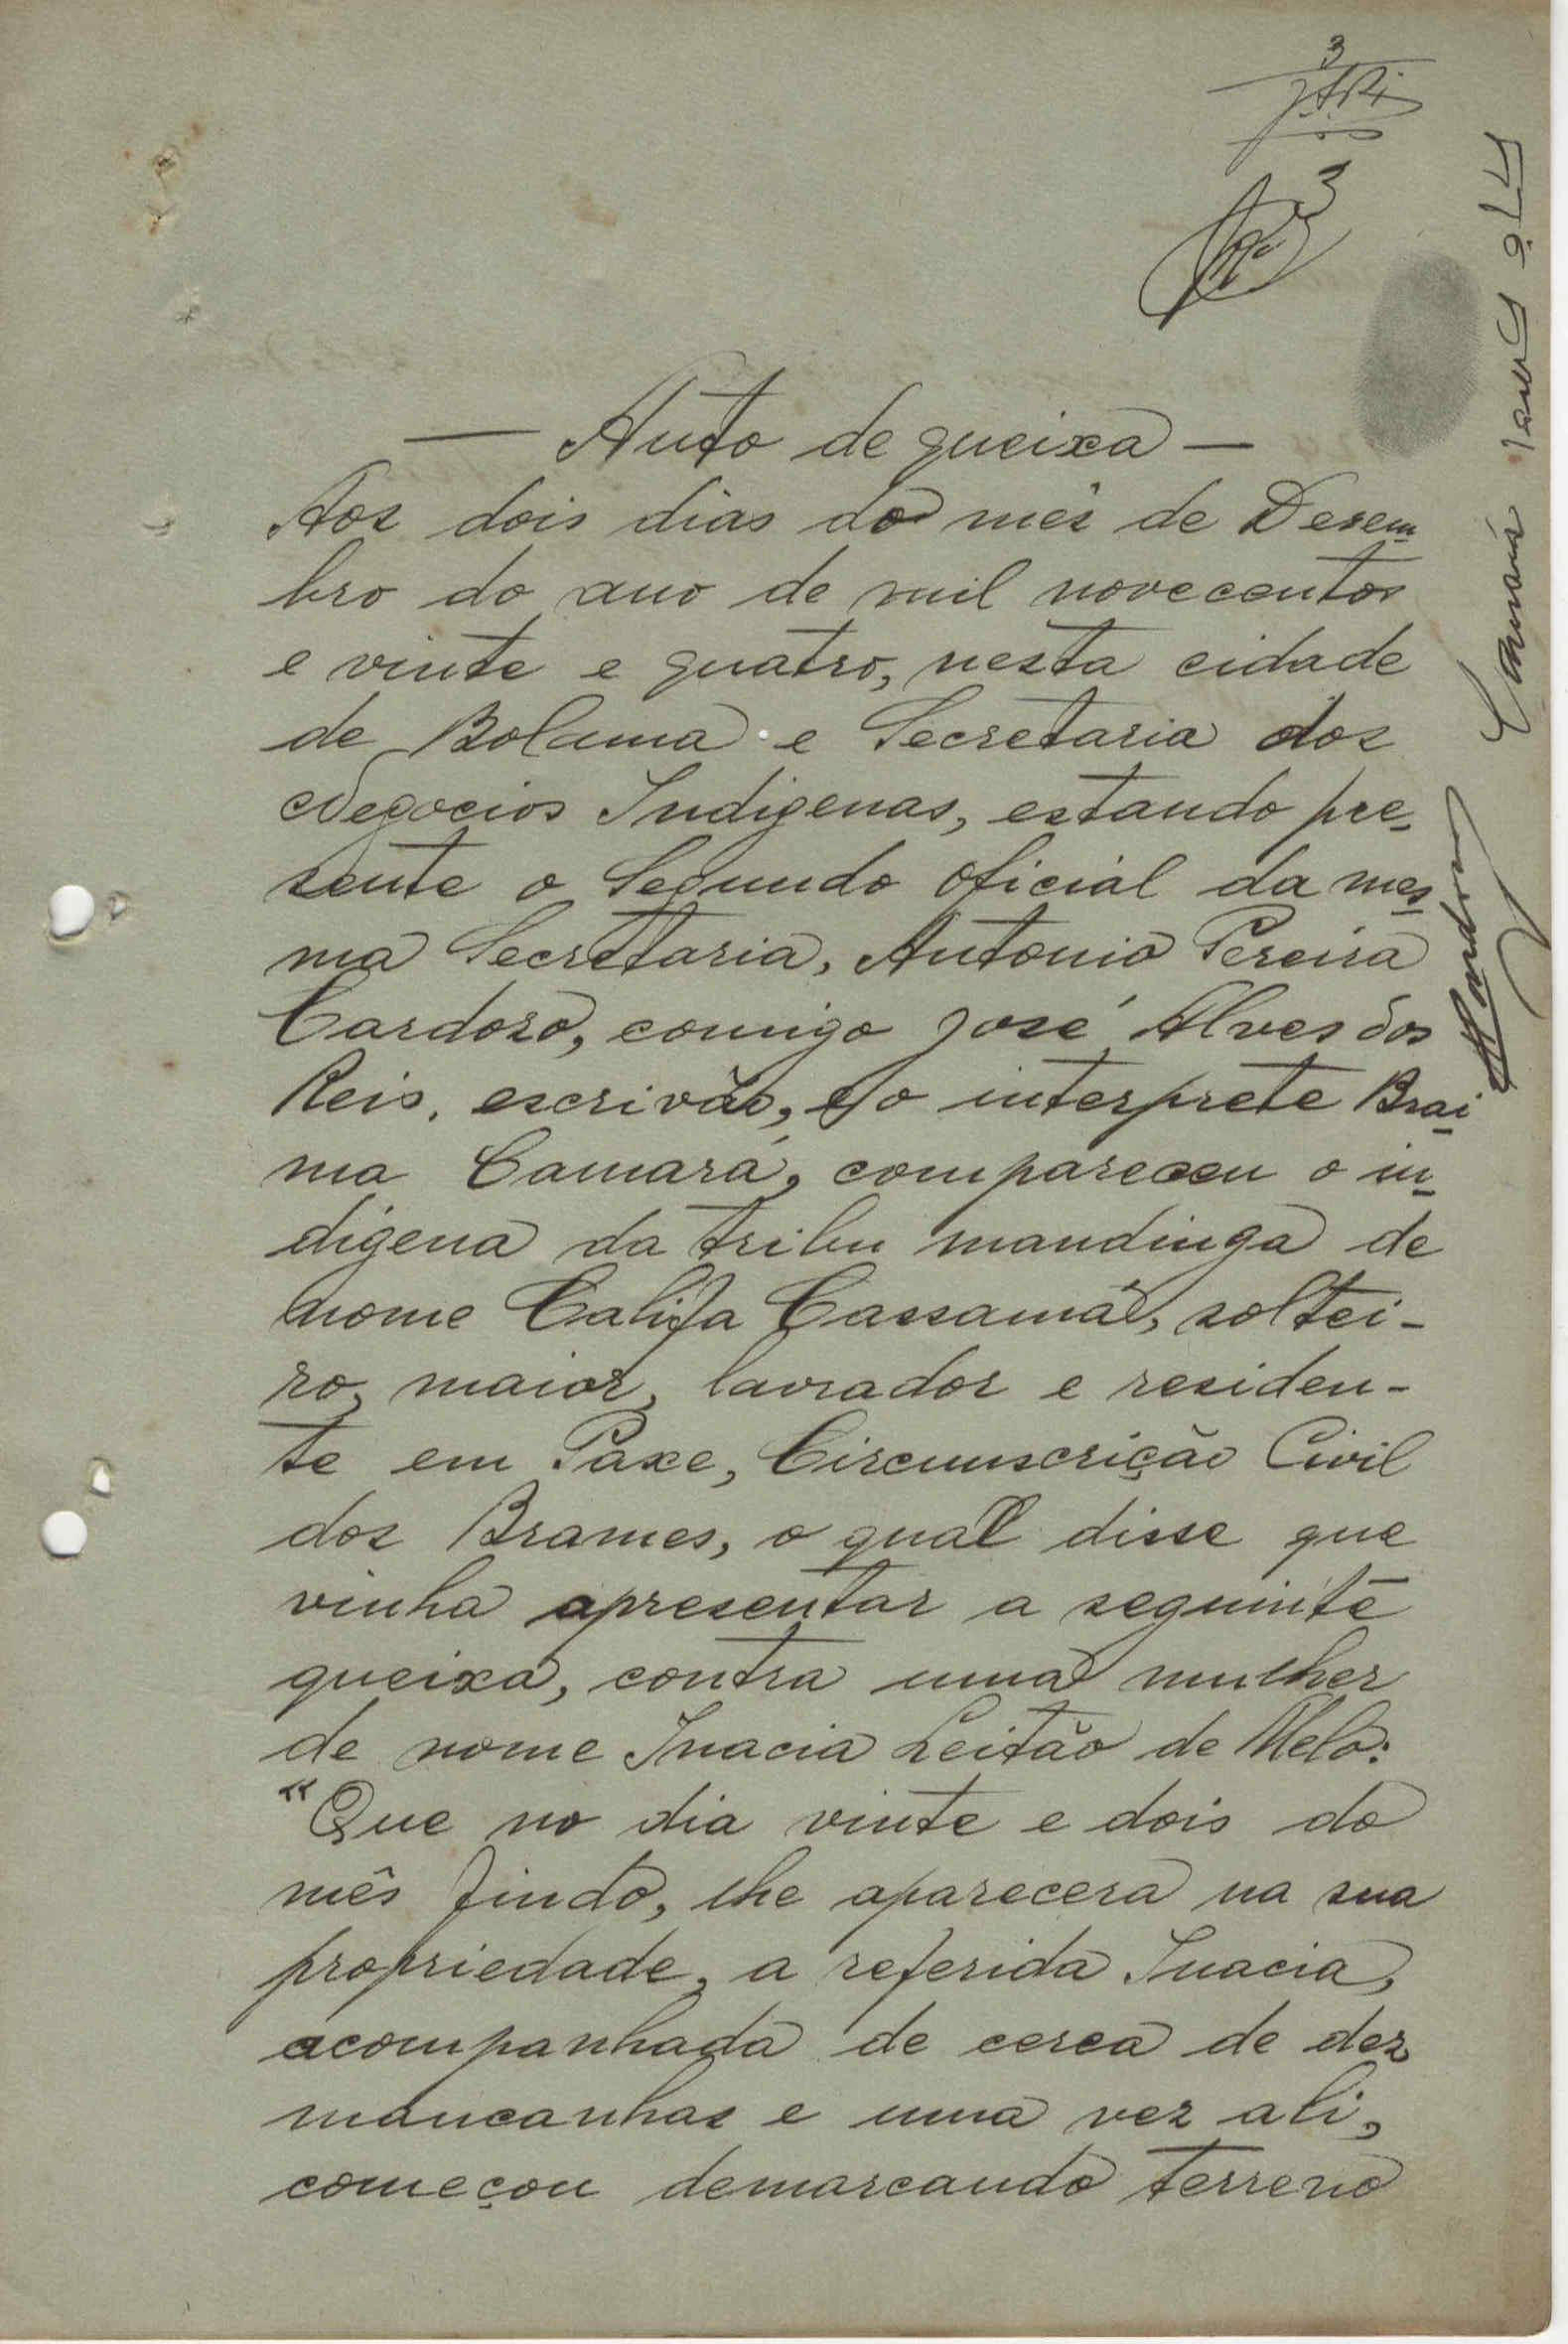 3
3
— Auto de queixa —
Aos dois dias do mês de Desem-
bro do ano de mil novecentos
e vinte e quatro, nesta cidade
de Bolama e Secretaria dos
Negocios Indigenas, estando pre-
sente o Segundo oficial da mes-
ma Secretaria, Antonio Pereira
Cardoso, comigo José Alves dos
Reis, escrivão, e o interprete Brai-
ma Camará, compareceu o in-
digena da tribu mandinga de
nome Califa Cassamá, soltei-
ro, maior, lavrador e residen-
te em Paxe, Circunscrição Civil
dos Brames, o qual disse que
vinha apresentar a seguinte
queixa, contra uma mulher
de nome Inacia Leitão de Melo:
"Que no dia vinte e dois do
mês findo, lhe aparecera na sua
propriedade, a referida Inacia,
acompanhada de cerca de dez
mancanhas e uma vez ali,
começou demarcando terreno